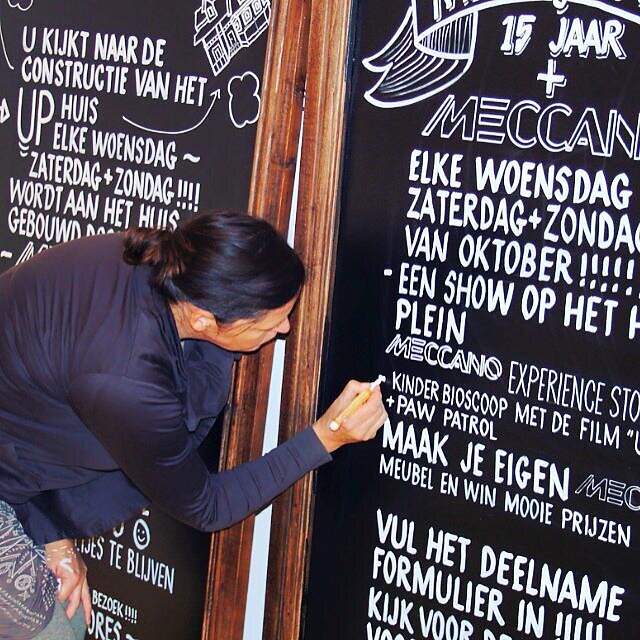 U KIJKT NAAR DE
CONSTRUCTIE VAN HET
UP HUIS
ELKE WOENSDAG ~
ZATERDAG + ZONDAG !!!!
WORDT AAN HET HUIS
GEBOUWD
TE BLIJVEN
BEZOEK!!!!
15 JAAR
+
MECCANO
ELKE WOENSDAG
ZATERDAG + ZONDAG
VAN OKTOBER !!!!!
- EEN SHOW OP HET
PLEIN
MECCANO EXPERIENCE
- KINDER BIOSCOOP MET DE FILM "U
+ PAW PATROL
MAAK JE EIGEN
MEUBEL EN WIN MOOIE PRIJZEN
VUL HET DEELNAME
FORMULIER IN !!!!!
KIJK VOOR DE